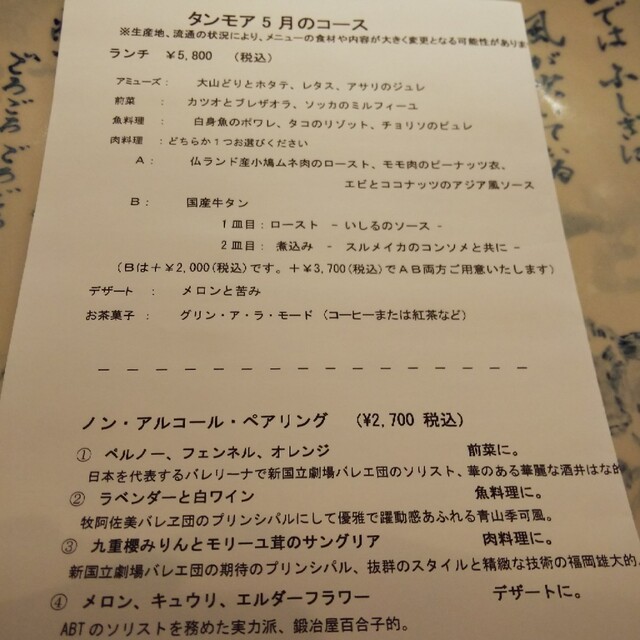 タンモア５月のコース
※生産地、流通の状況により、メニューの食材や内容が大きく変更となる可能性がありま
ランチ ￥5,800 （税込）
アミューズ： 大山どりとホタテ、レタス、アサリのジュレ
前菜 ： カツオとブレザオラ、ソッカのミルフィーユ
魚料理 ： 白身魚のポワレ、タコのリゾット、チョリソのピュレ
肉料理 ：どちらか１つお選びください
Ａ： 仏ランド産小鳩ムネ肉のロースト、モモ肉のピーナッツ衣、
エビとココナッツのアジア風ソース
Ｂ： 国産牛タン
１皿目：ロースト － いしるのソース －
２皿目： 煮込み － スルメイカのコンソメと共に －
（Ｂは＋￥2,000(税込)です。＋￥3,700(税込)でＡＢ両方ご用意いたします）
デザート ： メロンと苦み
お茶菓子 ： グリン・ア・ラ・モード（コーヒーまたは紅茶など）
－－－－－－－－－－－－－－－－－
ノン・アルコール・ペアリング （￥2,700 税込）
① ペルノー、フェンネル、オレンジ 前菜に。
日本を代表するバレリーナで新国立劇場バレエ団のソリスト、華のある華麗な酒井はな的
② ラベンダーと白ワイン 魚料理に。
牧阿佐美バレヱ団のプリンシパルにして優雅で躍動感あふれる青山季可風。
③ 九重櫻みりんとモリーユ茸のサングリア 肉料理に。
新国立劇場バレエ団の期待のプリンシパル、抜群のスタイルと精緻な技術の福岡雄大的。
④ メロン、キュウリ、エルダーフラワー デザートに。
ABTのソリストを務めた実力派、鍛冶屋百合子的。
ごろごろ どごろ
では ふしぎは
風が